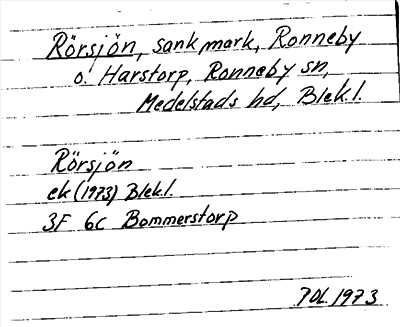 Rörsjön, sankmark, Ronneby
o. Harstorp, Ronneby sn,
Medelstads hd, Blek.l.
Rörsjön
ek (1973) Blek.l.
3F 6c Bommerstorp
1973